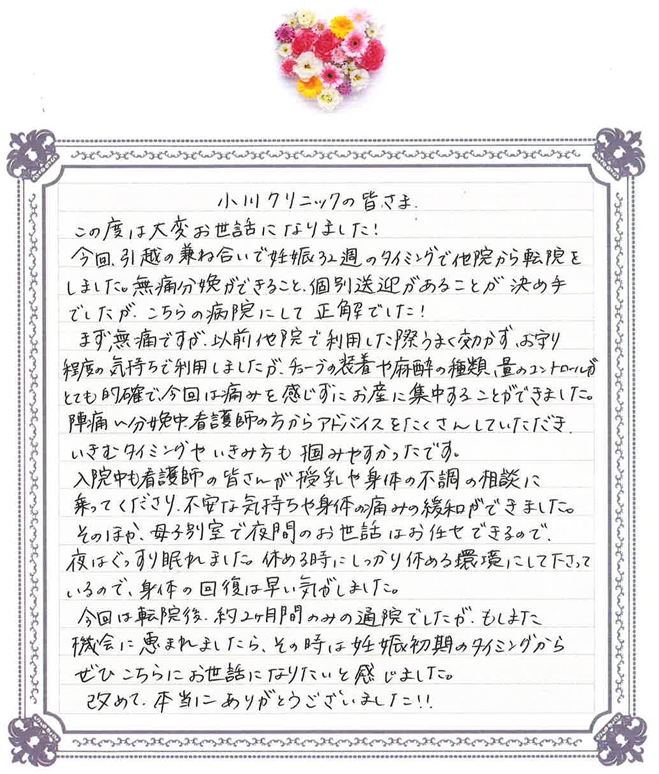 小川クリニックの皆さま
この度は大変お世話になりました！
今回、引越の兼ね合いで妊娠32週のタイミングで他院から転院を
しました。無痛分娩ができること、個別送迎があることが決め手
でしたが、こちらの病院にして正解でした！
まず、無痛ですが、以前他院で利用した際うまく効かず、お守り
程度の気持ちで利用しましたが、チューブの装着や麻酔の種類、量のコントロールが
とても的確で、今回は痛みを感じずにお産に集中することができました。
陣痛〜分娩中、看護師の方からアドバイスをたくさんしていただき、
いきむタイミングやいきみ方も掴みやすかったです。
入院中も看護師の皆さんが授乳や身体の不調の相談に
乗ってくださり、不安な気持ちや身体の痛みの緩和ができました。
そのほか、母子別室で夜間のお世話はお任せできるので、
夜はぐっすり眠れました。休める時にしっかり休める環境にして下さって
いるので、身体の回復は早い気がしました。
今回は転院後、約2ヶ月間のみの通院でしたが、もしまた
機会に恵まれましたら、その時は妊娠初期のタイミングから
ぜひこちらにお世話になりたいと感じました。
改めて、本当にありがとうございました！！